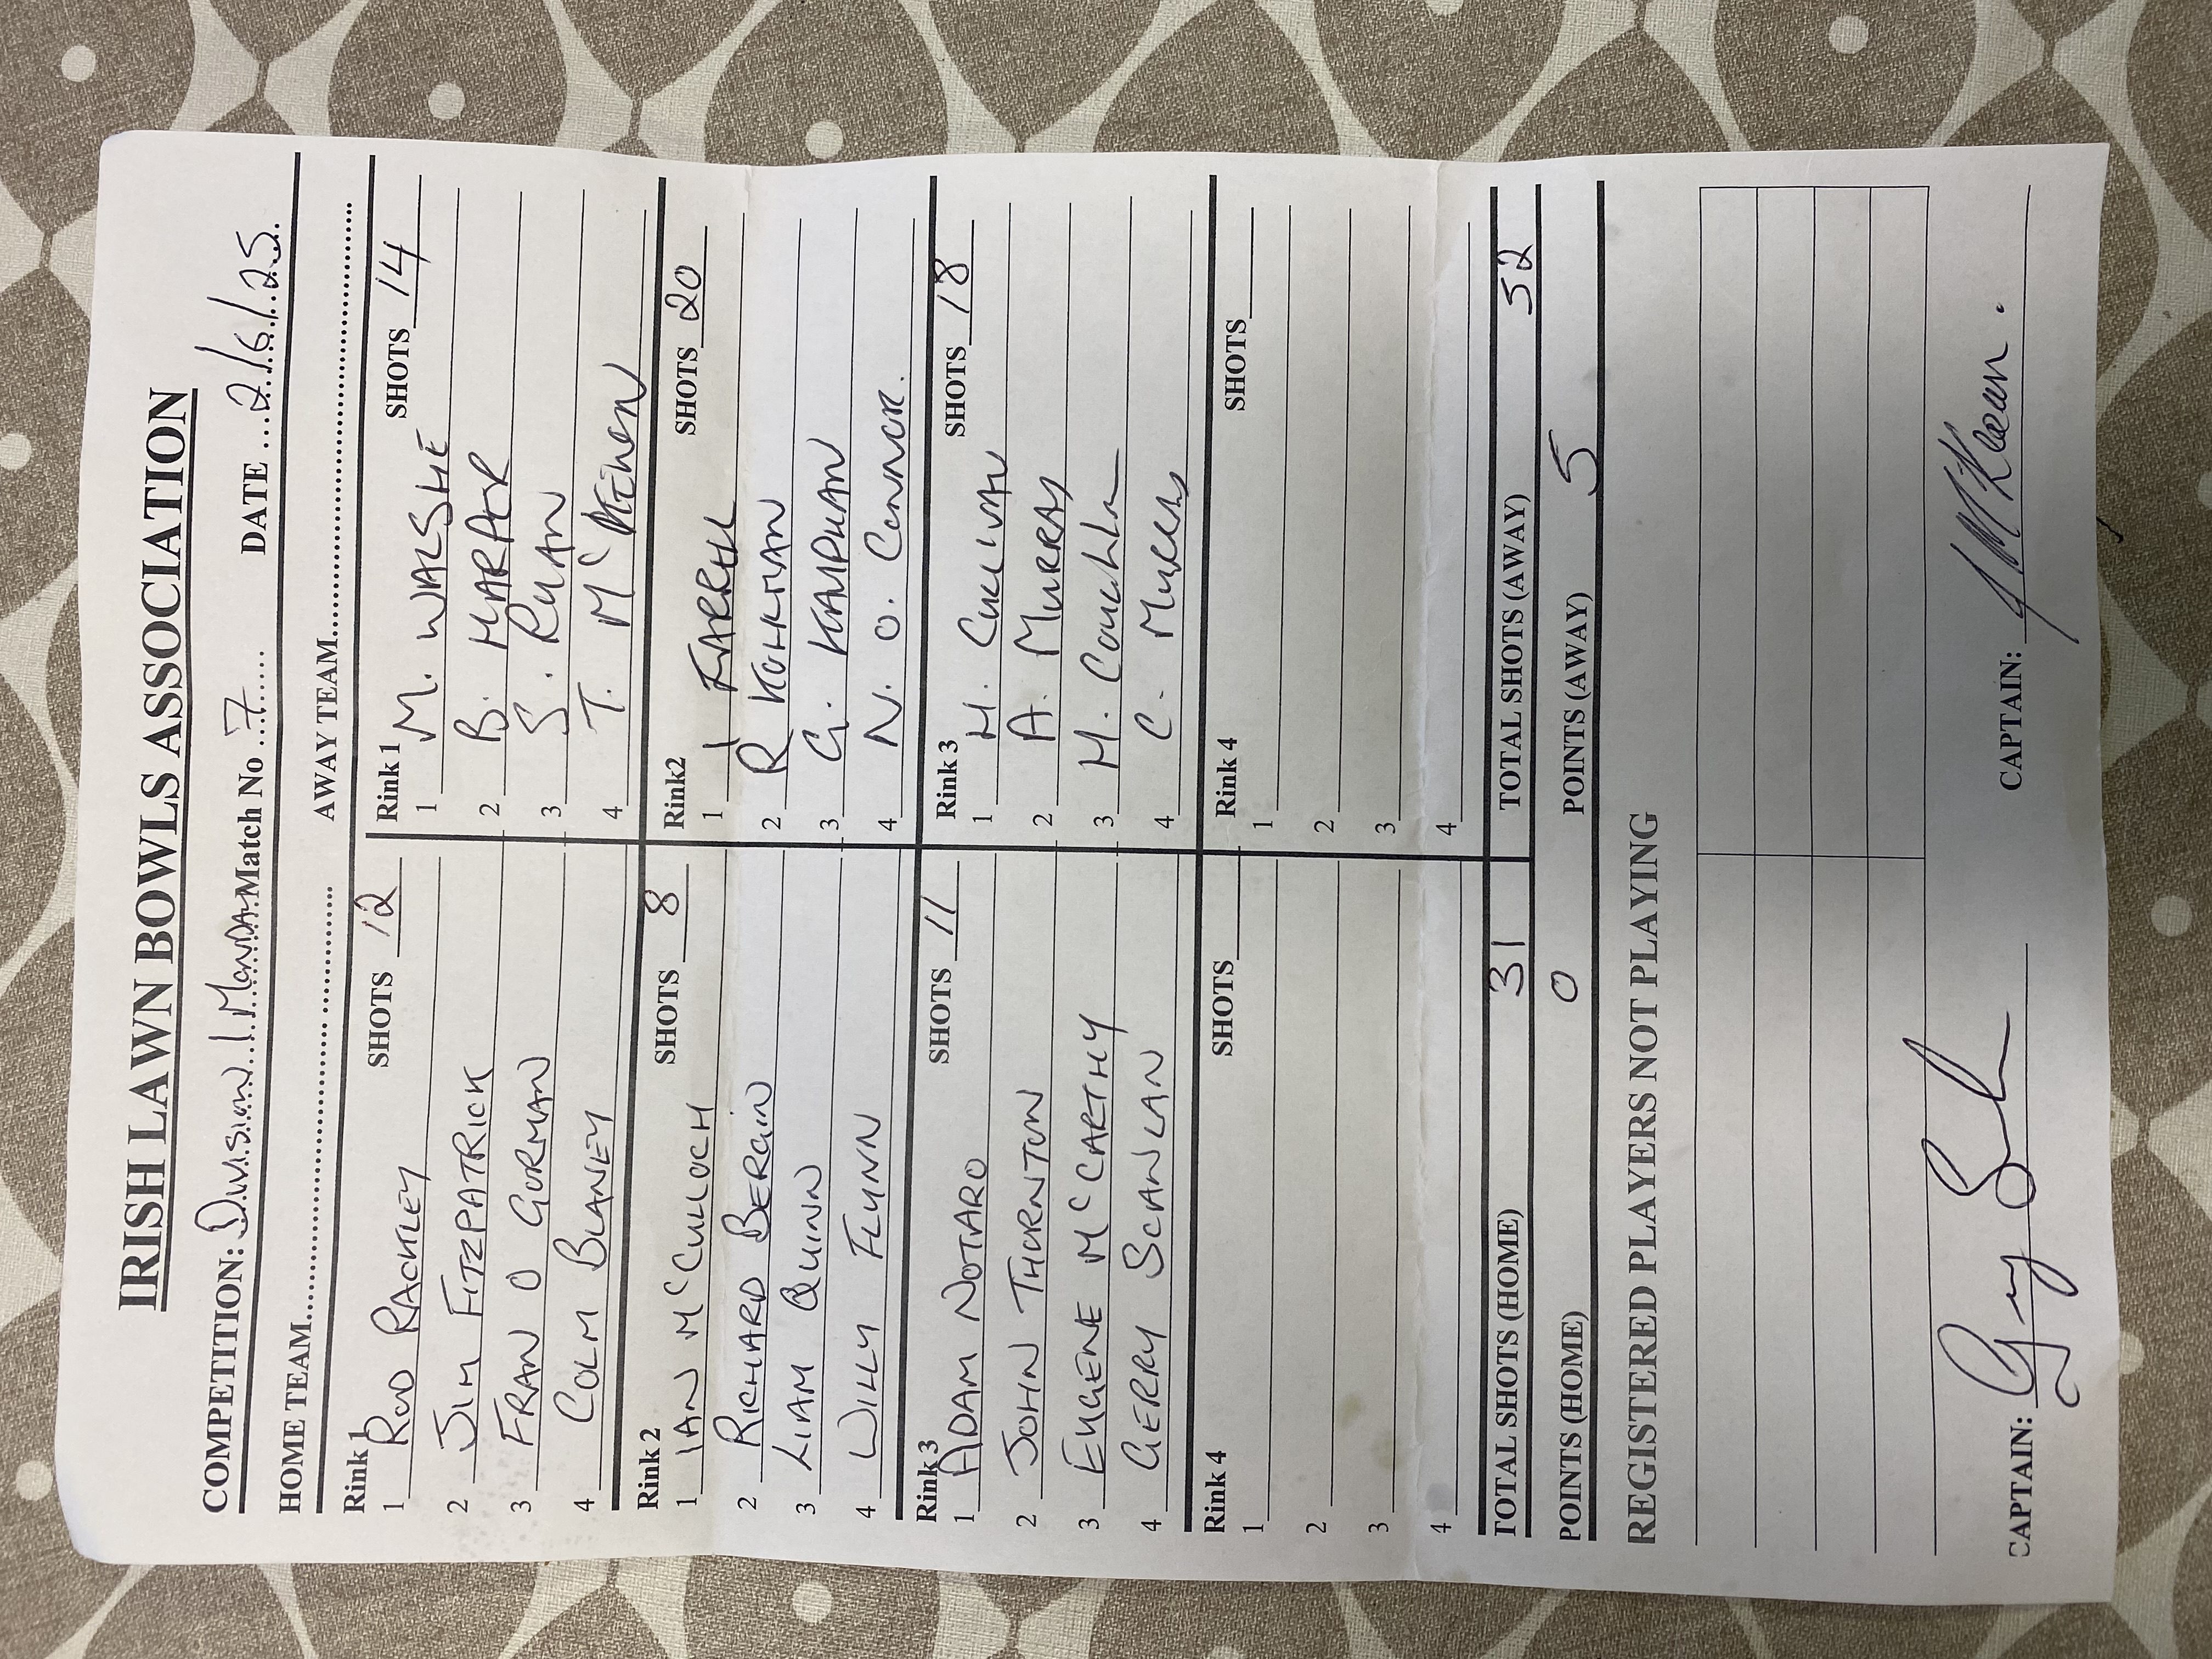 IRISH LAWN BOWLS ASSOCIATION
COMPETITION: Division 1 Monda Match No ..7...... DATE ....2/6/25.
HOME TEAM.............................. AWAY TEAM..............................
Rink 1 SHOTS 12 Rink 1 SHOTS 14
1 ROD RACKLEY 1 M. WALSHE
2 JIM FITZPATRICK 2 B. HARPER
3 FRAN O GORMAN 3 S. RYAN
4 COLM BLANEY 4 T. McKEWEN
Rink 2 SHOTS 8 Rink2 SHOTS 20
1 IAN McCULLOCH 1 I FARRELL
2 RICHARD BERGIN 2 R
3 LIAM QUINN 3 G.
4 WILLY FLYNN 4 N. O. CONNOR.
Rink 3 SHOTS 11 Rink 3 SHOTS 18
1 ADAM NOTARO 1 H. CULLIVAN
2 JOHN THORNTON 2 A. MURRAY
3 EUGENE McCARTHY 3 H.
4 GERRY SCANLAN 4 C.
Rink 4 SHOTS Rink 4 SHOTS
1 1
2 2
3 3
4 4
TOTAL SHOTS (HOME) 31 TOTAL SHOTS (AWAY) 52
POINTS (HOME) 0 POINTS (AWAY) 5
REGISTERED PLAYERS NOT PLAYING
CAPTAIN: CAPTAIN: